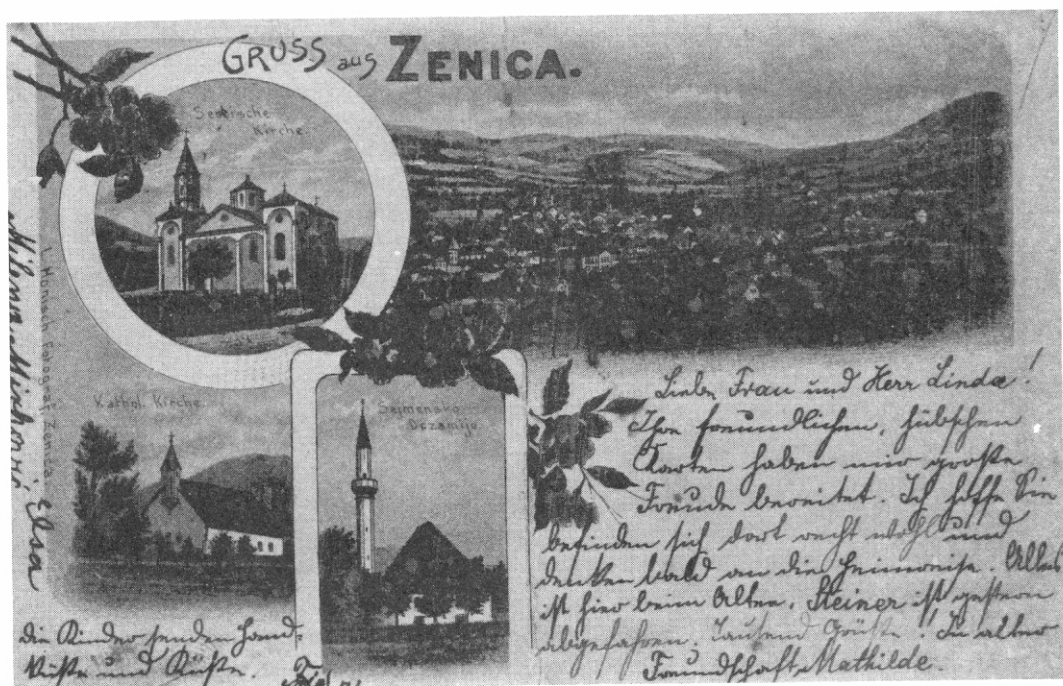 GRUSS aus ZENICA.
Serbische
Kirche.
Kathol. Kirche.
Sejmenska
Dzamija
Fotograf, Zenica
Liebe Frau und Herr Linda!
Ihre freundlichen, hübschen
Karten haben mir große
Freude bereitet. Ich hoffe Sie
befinden sich dort recht wohl und
denken bald an die Heimreise. Alles
ist hier beim Alten. Steiner ist gestern
abgefahren. Tausend Grüße! In alter
Freundschaft Mathilde.
die Kinder senden Hand-
küsse und Küsse.
Elsa